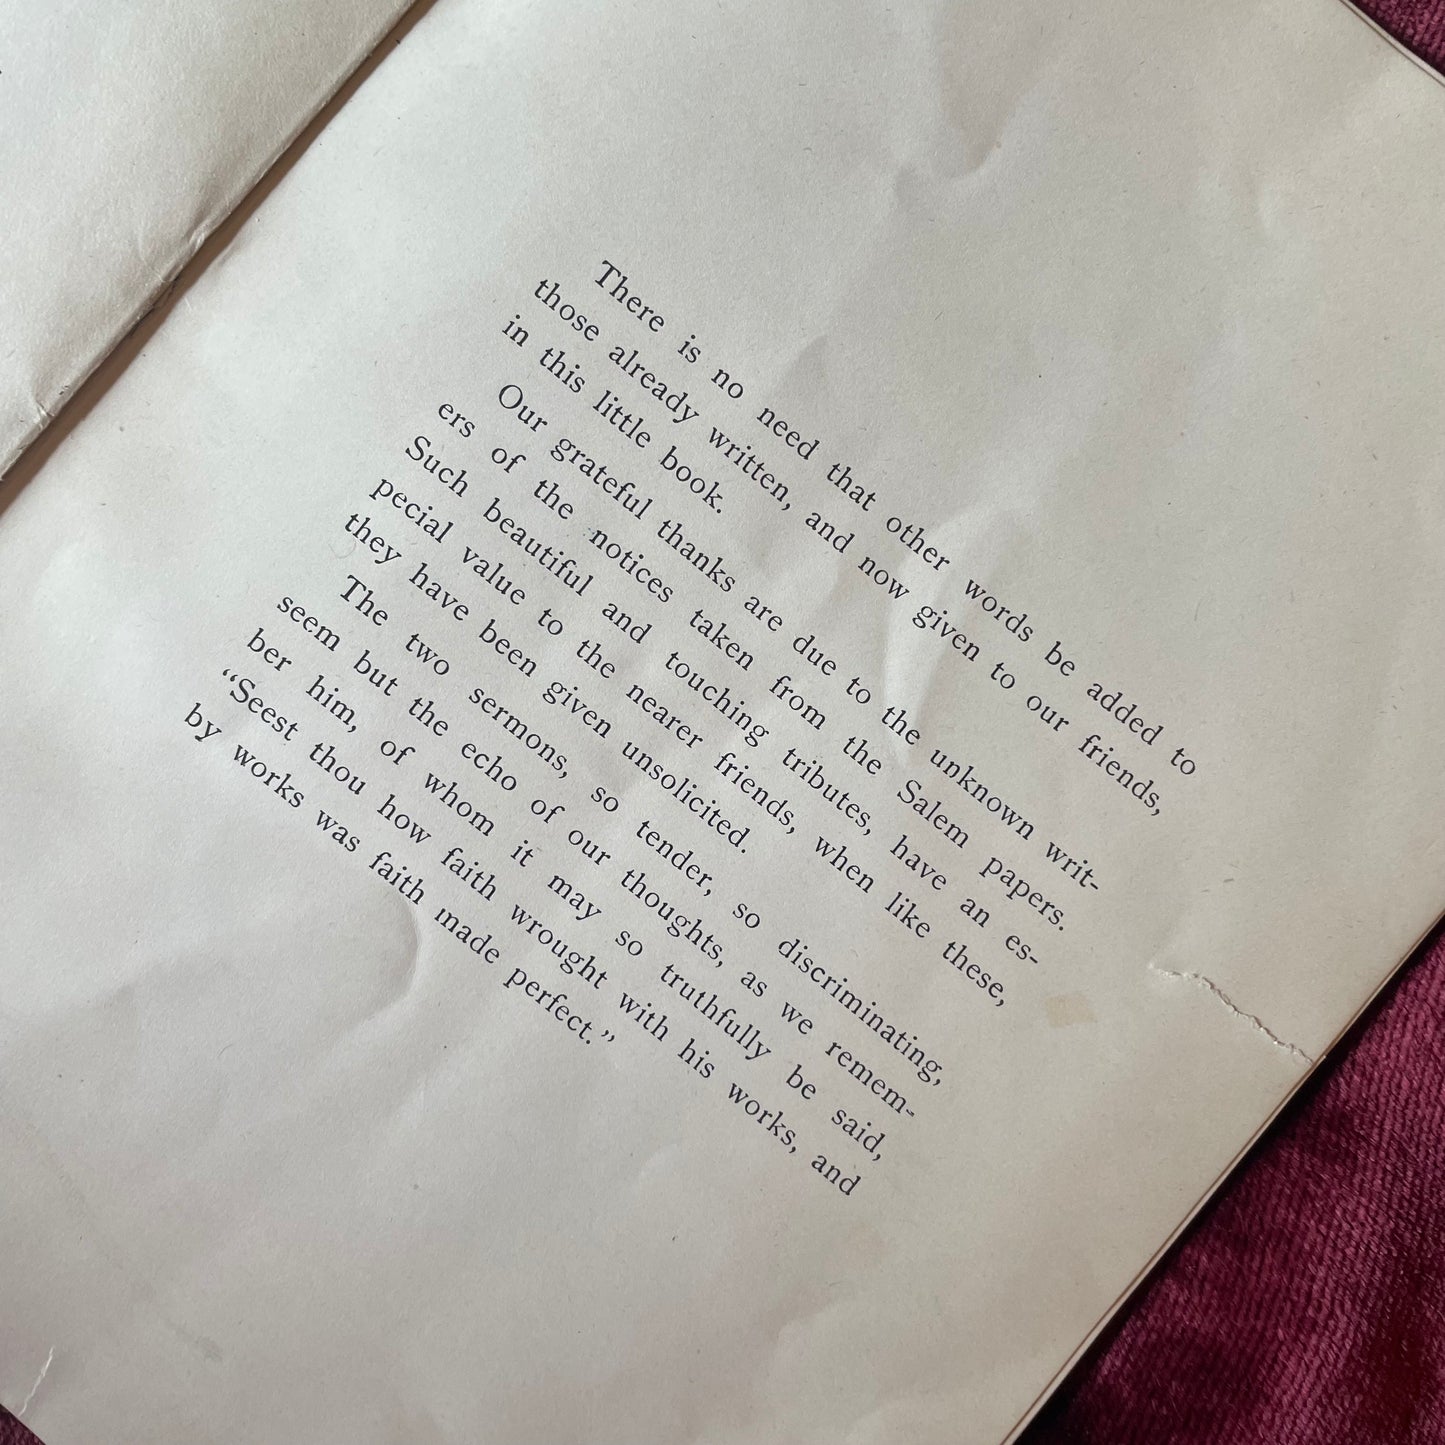 There is no need that other words be added to
those already written, and now given to our friends,
in this little book.
Our grateful thanks are due to the unknown writ-
ers of the notices taken from the Salem papers.
Such beautiful and touching tributes, have an es-
pecial value to the nearer friends, when like these,
they have been given unsolicited.
The two sermons, so tender, so discriminating,
seem but the echo of our thoughts, as we remem-
ber him, of whom it may so truthfully be said,
“Seest thou how faith wrought with his works, and
by works was faith made perfect.”